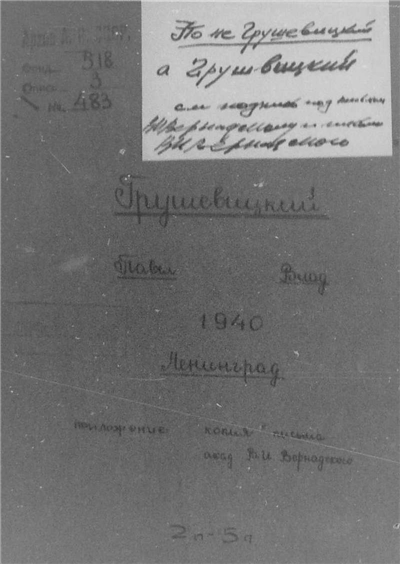 Архив А. Н. СССР
Фонд 518
Опись 3
№ 483
То не Грушевицкий
а Грушвицкий
см подпись под письмом
В.И. Вернадскому и письмо
В.И. Вернадского
Грушевицкий
Павел Влад
1940
Ленинград
приложение: копия письма
акад В. И. Вернадского
2л-5л